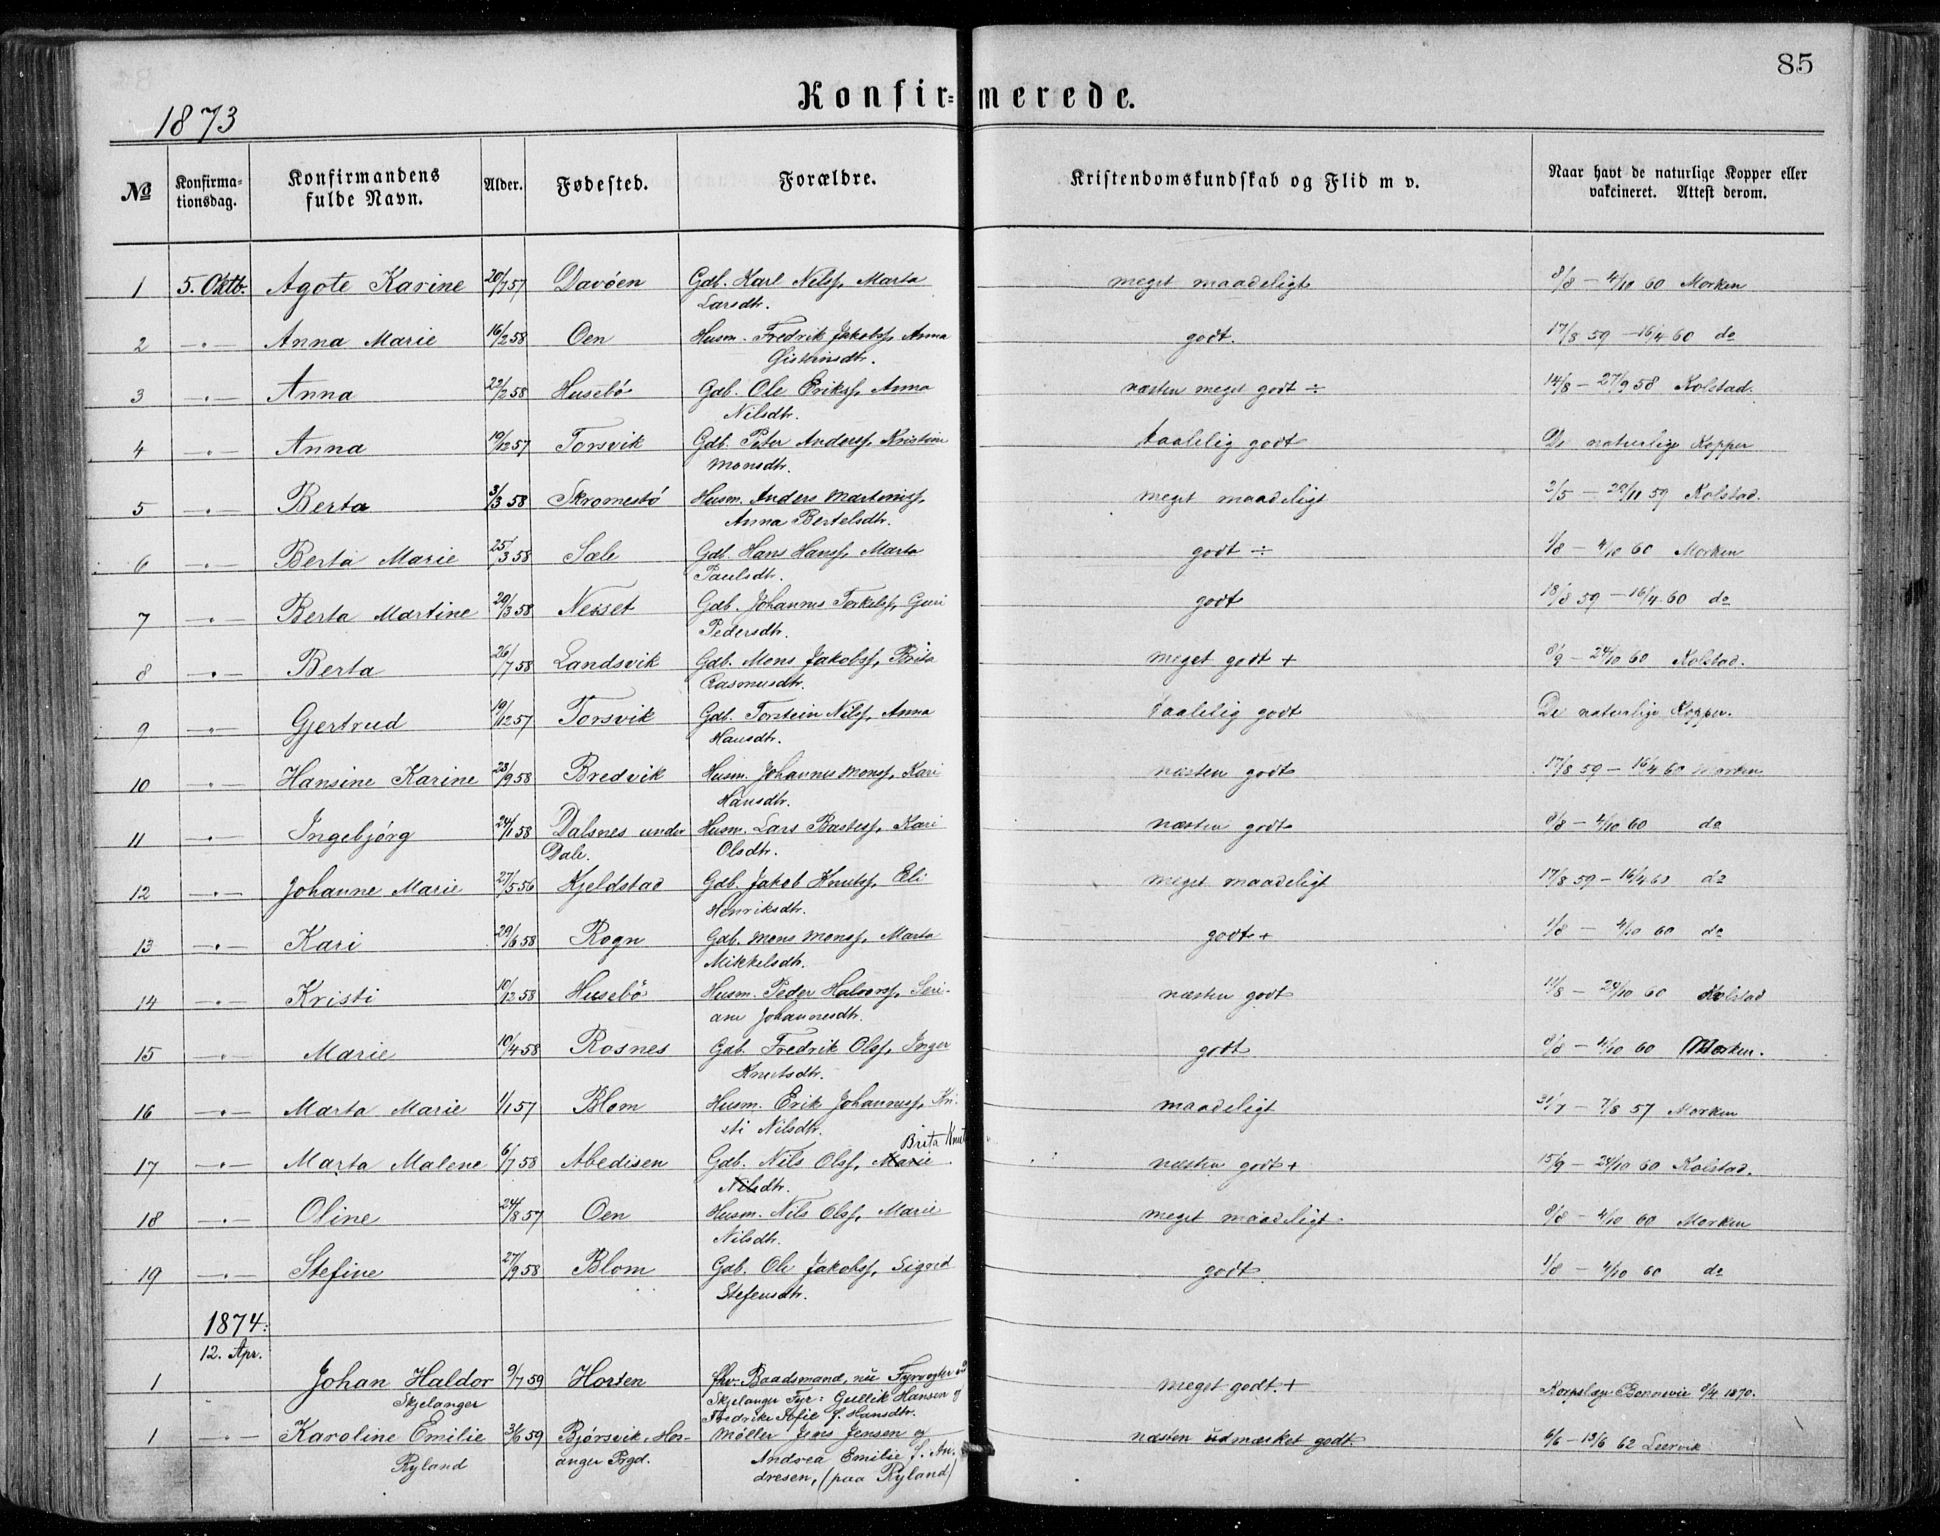 85
Konfir=merede.
1873
No Konfirma=tionsdag. Konfirmandens fulde Navn. Alder. Fødested. Forældre. Kristendomskundskab og Flid m v. Naar havt de naturlige Kopper eller vakcineret. Attest derom.
1 5. Oktb. Agote Karine 20/7 57 Davöen Gdb. Karl Nilss, Marta meget maadeligt 8/8 – 4/10 60 Morken
Larsdtr.
2 –„– Anna Marie 16/2 58 Oen Husm. Fredrik Jakobss, Anna godt. 17/8 59 – 16/4 60 do
Gisthinsdtr.
3 –„– Anna 22/2 58 Husebö Gdb. Ole Erikss, Anna næsten meget godt ÷ 14/8 – 27/9 58 Kolstad.
Nilsdtr.
4 –„– Anna 19/12 57 Torsvik Gdb. Peter Anderss, Kristine taalelig godt De naturlige Kopper
Monsdtr.
5 –„– Berta 3/3 58 Skromestö Husm. Anders Martiniss, meget maadeligt 2/5 – 29/11 59 Kolstad.
Anna Bertelsdtr.
6 –„– Berta Marie 25/3 58 Sæle Gdb. Hans Hanss, Marta godt ÷ 1/8 – 4/10 60 Morken
Paulsdtr.
7 –„– Berta Martine 29/3 58 Nesset Gdb. Johannes Torkelss, Guri godt 18/8 59 – 16/4 60 do
Pedersdtr.
8 –„– Berta 26/7 58 Landsvik Gdb. Mons Jakobss, Brita meget godt + 8/9 – 24/10 60 Kolstad.
Rasmusdtr.
9 –„– Gjertrud 19/12 57 Torsvik Gdb. Torstein Nilss, Anna taalelig godt De naturlige Kopper.
Hansdtr.
10 –„– Hansine Karine 23/9 58 Bredvik Husm. Johannes Monss, Kari næsten godt 17/8 59 – 16/4 60 Morken
Hansdtr.
11 –„– Ingebjörg 24/1 58 Dalsnes under Husm. Lars Bastess, Kari næsten godt 8/8 – 4/10 60 do
Dale. Olsdtr.
12 –„– Johanne Marie 27/5 56 Kjeldstad Gdb. Jakob Knutss, Eli meget maadeligt 17/8 59 – 16/4 60 do
Henriksdtr.
13 –„– Kari 29/6 58 Rogn Gdb. Mons Monss, Marta godt + 1/8 – 4/10 60 do
Mikkelsdtr.
14 –„– Kristi 10/12 58 Husebö Husm. Peder Halvorss, Seri- næsten godt 11/8 – 24/10 60 Kolstad
ane Johannesdtr.
15 –„– Marie 10/4 58 Rosnes Gdb. Fredrik Olss, Inger godt 8/8 – 4/10 60 Morken.
Knutsdtr.
16 –„– Marta Marie 1/1 57 Blom Husm. Erik Johanness, Kri- maadeligt 31/7 – 7/8 57 Morken
sti Nilsdtr.
Brita Knut
17 –„– Marta Malene 6/7 58 Abedisen Gdb. Nils Olss, Marie næsten godt + 15/9 – 24/10 60 Kolstad.
Nilsdtr.
18 –„– Oline 24/8 57 Oen Husm. Nils Olss, Marie meget maadeligt 8/8 – 4/10 60 Morken
Nilsdtr.
19 –„– Stefine 27/9 58 Blom Gdb. Ole Jakobss, Sigrid godt 1/8 – 4/10 60 do
Stefensdtr.
1874:
12. Apr.
1 Johan Haldor 9/7 59 Horten fhv. Baadsmand, nu Fyrvogter ved meget godt + Korpslæge Bonnevie 8/4 1870.
Skjelanger Skjelanger Fyr: Gullik Hansen og
Fredrike Sofie f. Hansdtr.
1 –„– Karoline Emilie 3/6 59 Bjørsvik, Hos- Møller Jens Jensen og næsten udmærket godt. 6/6 – 13/6 62 Leervik
Ryland anger Prgd. Andrea Emilie f. An-
dresen, (paa Ryland)